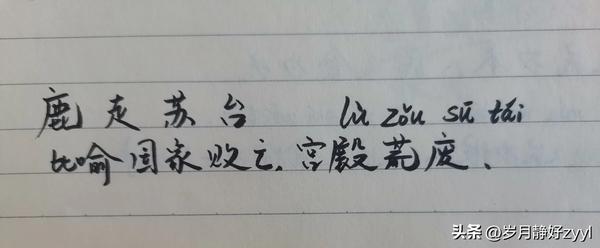 鹿走苏台 lù zǒu sū tái
比喻国家败亡、宫殿荒废、
头条 @岁月静好zyyl